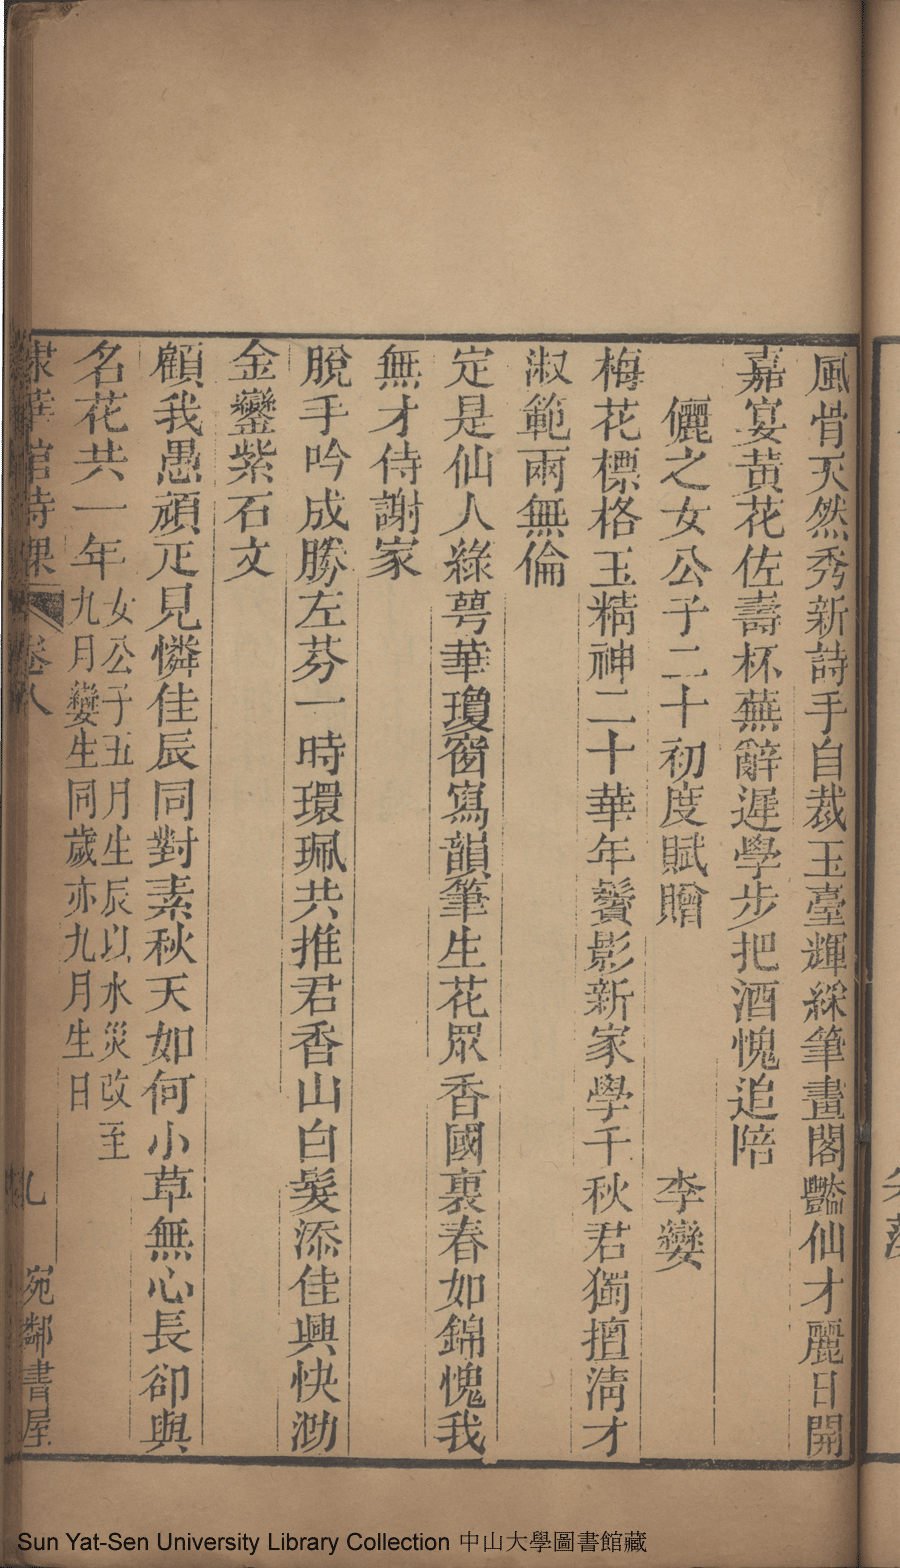 風骨天然秀新詩手自裁玉臺輝綵筆畫閣豔仙才麗日開
嘉宴黃花佐壽杯蕪辭遲學步把酒愧追陪
儷之女公子二十初度賦贈 李孌
梅花標格玉精神二十華年鬢影新家學千秋君獨擅清才
淑範兩無倫
定是仙人綠萼華瓊窗寫韻筆生花眾香國裏春如錦愧我
無才侍謝家
脫手吟成勝左芬一時環珮共推君香山白髮添佳興快泐
金鑾紫石文
顧我愚頑疋見憐佳辰同對素秋天如何小草無心長卻與
名花共一年
女公子五月生辰以水災改至
九月孌生同歲亦九月生日
棣華館詩課 卷八 九 宛鄰書屋
Sun Yat-Sen University Library Collection 中山大學圖書館藏